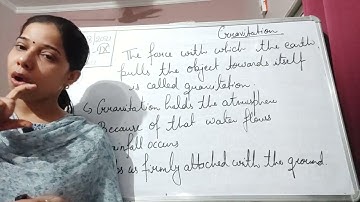 Gravitation
The force with which the earth
pulls the object towards itself
is called gravitation.
Gravitation holds the atmosphere
Because of that water flows
rainfall occurs
us firmly attached with the ground